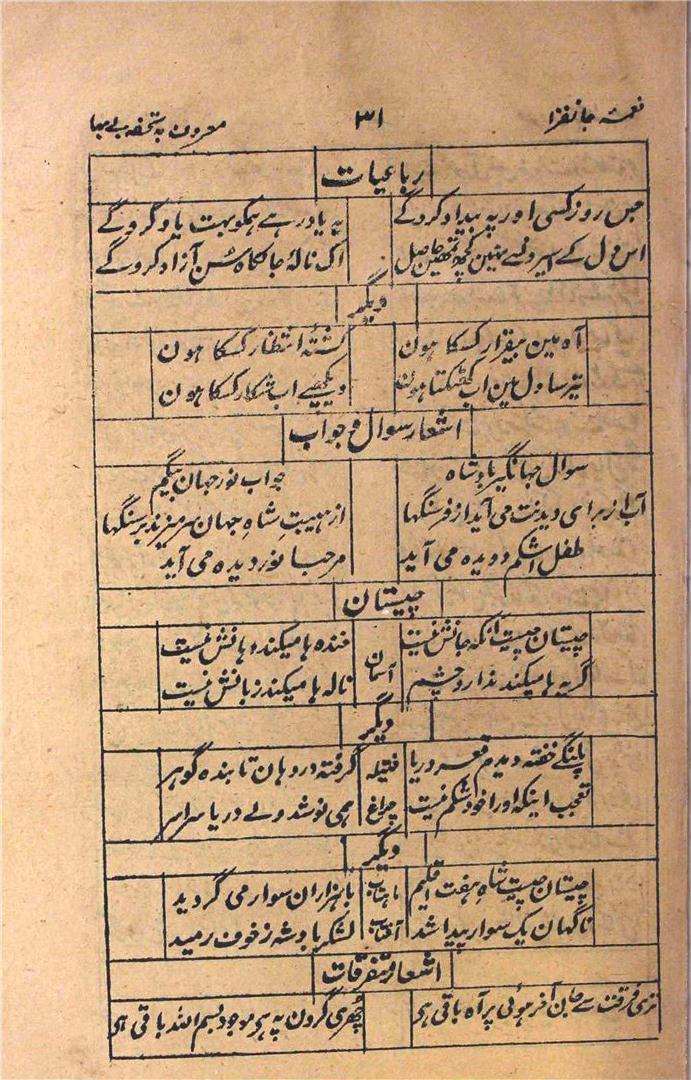 نغمۂ جانفزا ۳۱ معروف بہ تحفہ بے بہا
رباعیات
جس روز کسی اور پہ بیداد کروگے یہ یاد رہے ہمکو بہت یاد کروگے
اس دل کے اسیرونسے نہین کچھ تمھین حاصل اک نالۂ جانکاہ سُن آزاد کروگے
دیگر
آہ مین بیقرار کسکا ہون کشتۂ انتظار کسکا ہون
تیر سا دل مین اب کھٹکتا ہون دیکھیے اب شکار کسکا ہون
اشعار سوال و جواب
سوال جہانگیر بادشاہ جواب نور جہان بیگم
آب از برای دیدنت می آید از فرسنگہا از ہیبت شاہ جہان سر میزند بر سنگہا
طفل اشکم دویدہ می آید مرحبا نور دیدہ می آید
چیستان
چیستان چیست آنکہ جانش نیست خندہ ہا میکند دہانش نیست
گریہ ہا میکند ندارد چشم آسمان نالہ ہا میکند زبانش نیست
دیگر
پلنگے خفتہ دیدم قعر دریا فتیلہ گرفتہ در دہان تابندہ گوہر
تعجب اینکہ او را خود شکم نیست چراغ ہمی نوشد ولے دریا سراسر
دیگر
چیستان چیست شاہ ہفت اقلیم ماہتاب با ہزاران سوار می گردید
ناگہان یک سوار پیدا شد آفتاب لشکر بادشہ ز خوف رمید
اشعار متفرقات
تری فرقت سے جان آخر ہوئی پر آہ باقی ہی چھری گردن پہ ہر موجود بسم اللہ باقی ہی